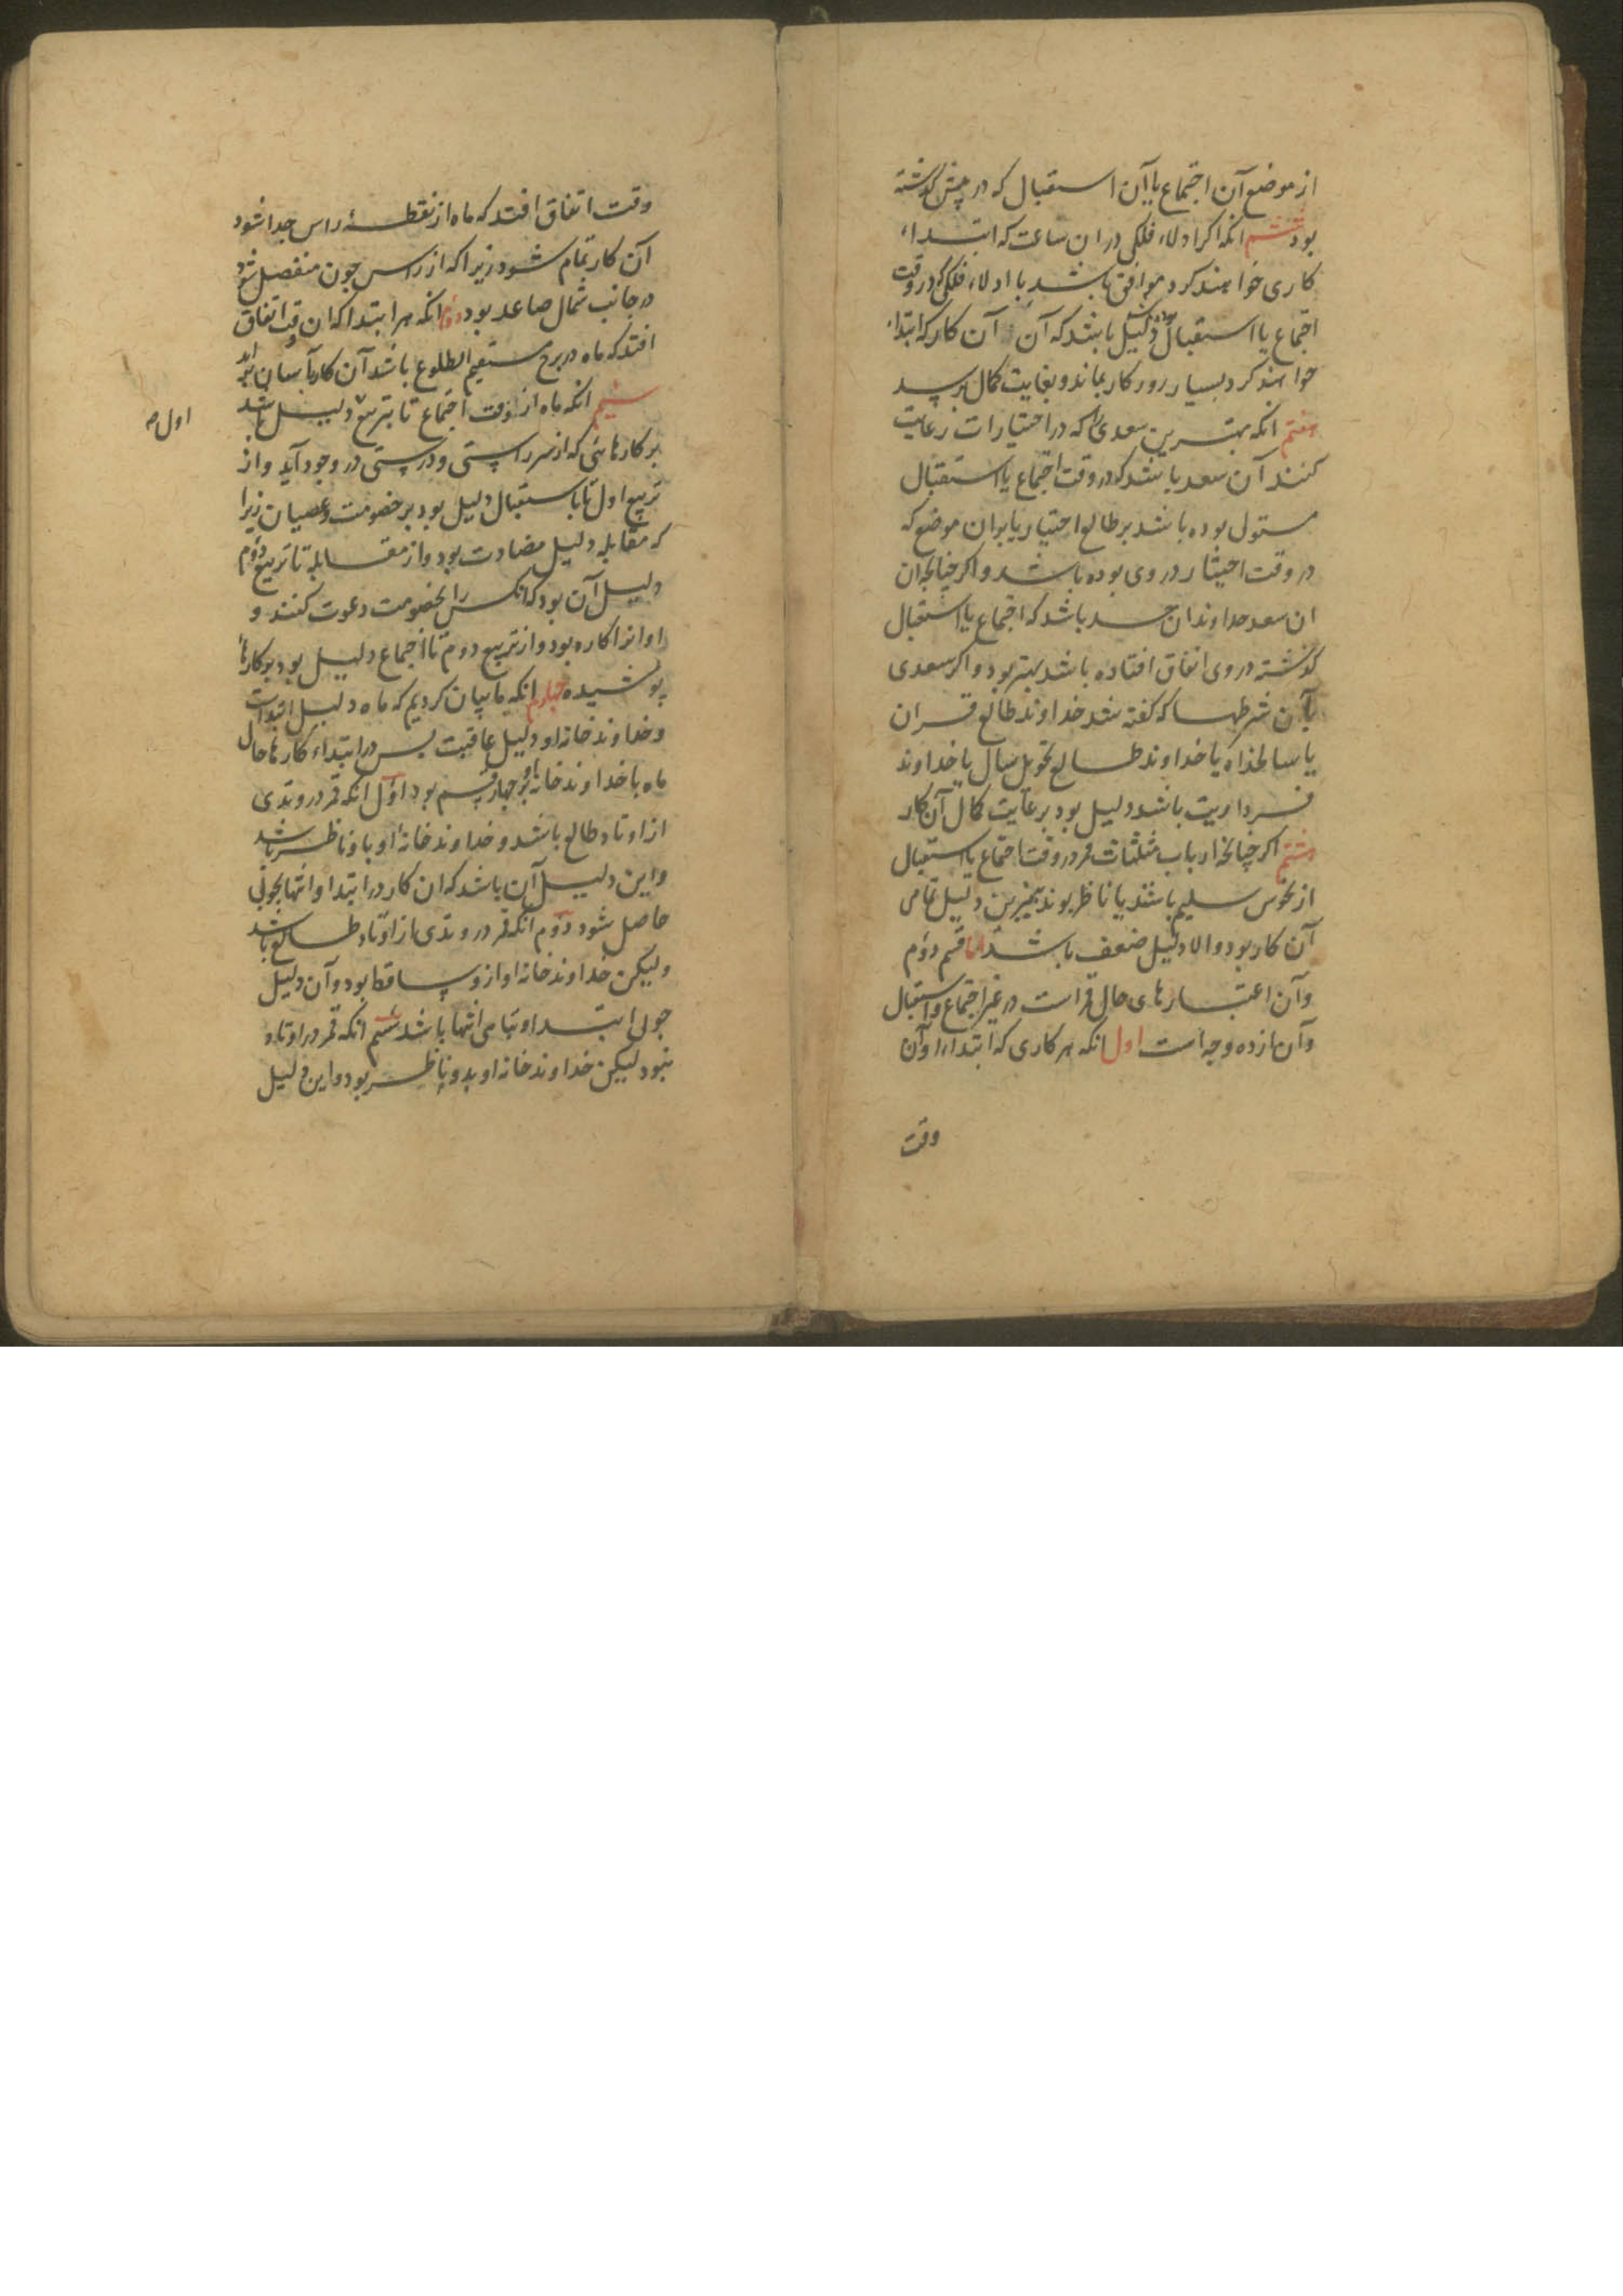 از موضع آن اجتماع یا آن استقبال که در پیش گذشته
بود ششم انکه اکر ادلاء فلکی در ان ساعت که ابتداء
کاری خواهند کرد موافق باشد با ادلاء فلکی که در وقت
اجتماع یا استقبال بوده دلیل باشد که آن آن کار که ابتداء
خواهند کرد بسیار روزکار بماند و بغایت کمال برسد
هفتم انکه بهترین سعدی که در اختیارات رعایت
کنند آن سعد باشد که در وقت اجتماع یا استقبال
مستولی بوده باشد بر طالع اختیار یا بر ان موضع که
در وقت اختیار در وی بوده باشد و اکر چنانچه ان
ان سعد خداوند ان حد باشد که اجتماع یا استقبال
کذشته در وی اتفاق افتاده باشد بهتر بود و اکر سعدی
بآن شرطها که کفته شد خداوند طالع قران
یا سالخداه یا خداوند طالع تحویل سال یا خداوند
فرداریت باشد دلیل بود بر غایت کمال آن کار
هشتم اکر چنانچه ارباب مثلثات قمر در وقت اجتماع یا استقبال
از نحوس سلیم باشند یا ناظر بوند بنیرین دلیل تمامی
آن کار بود و الا دلیل ضعف باشد اما قسم دوم
و آن اعتبارهای حال قمر است در غیر اجتماع و استقبال
و آن یازده وجه است اول انکه هر کاری که ابتداء او آن
وقت
وقت اتفاق افتد که ماه از نقطهٔ راس جدا شود
آن کار تمام شود زیرا که از راس چون منفصل شود
در جانب شمال صاعد بود دوم انکه هر ابتدا که ان وقت اتفاق
افتد که ماه در برج مستقیم الطلوع باشد آن کار بآسانی براید
سیم انکه ماه از وقت اجتماع تا بتربیع دلیل باشد
اول صح
بر کارهائی که از سر راستی و درستی در وجود آید و از
تربیع اول تا باستقبال دلیل بود بر خصومت و عصیان زیرا
که مقابله دلیل مضادت بود و از مقابله تا تربیع دوم
دلیل آن بود که انکس را بخصومت دعوت کنند و
او انرا کاره بود و از تربیع دوم تا اجتماع دلیل بود بر کارهاء
پوشیده چهارم انکه ما بیان کردیم که ماه دلیل ابتداست
و خداوند خانه او دلیل عاقبت پس در ابتداء کارها حال
ماه با خداوند خانه او بر چهار قسم بود اول انکه قمر در وتدی
از اوتاد طالع باشد و خداوند خانهٔ او باو ناظر باشد
و این دلیل آن باشد که ان کار در ابتدا و انتها بخوبی
حاصل شود دوم آنکه قمر در وتدی از اوتاد طالع باشد
ولیکن خداوند خانه او ازو ساقط بود و آن دلیل
خوبی ابتدا و تباهی انتها باشد سیم انکه قمر در اوتاد
نبود لیکن خداوند خانه او بدو ناظر بود و این دلیل